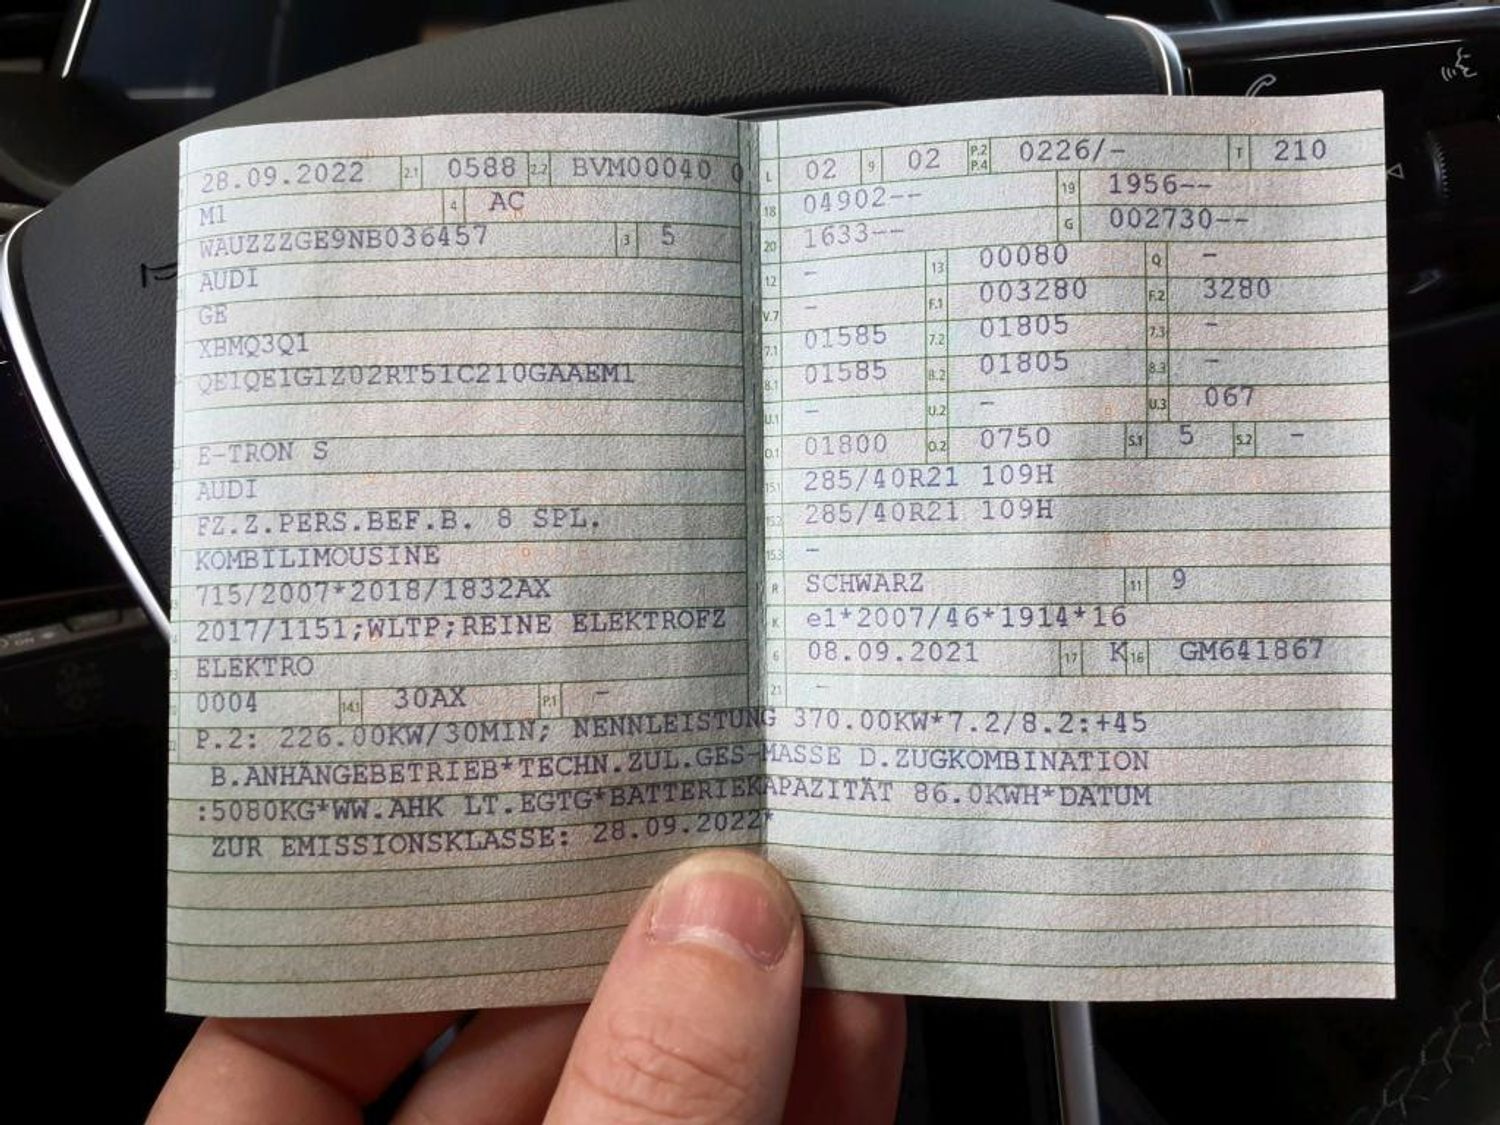 28.09.2022 2.1 0588 2.2 BVM00040 0
M1 4 AC
WAUZZZGE9NB036457 3 5
AUDI
GE
XBMQ3Q1
QE1QE1G1Z02RT51C210GAAEM1
E-TRON S
AUDI
FZ.Z.PERS.BEF.B. 8 SPL.
KOMBILIMOUSINE
715/2007*2018/1832AX
2017/1151;WLTP;REINE ELEKTROFZ
ELEKTRO
0004 14.1 30AX P.1 -
L 02 9 02 P.2 P.4 0226/- T 210
18 04902-- 19 1956--
20 1633-- G 002730--
12 - 13 00080 Q -
V.7 - F.1 003280 F.2 3280
7.1 01585 7.2 01805 7.3 -
8.1 01585 8.2 01805 8.3 -
U.1 - U.2 - U.3 067
O.1 01800 O.2 0750 S.1 5 S.2 -
15.1 285/40R21 109H
15.2 285/40R21 109H
15.3 -
R SCHWARZ 11 9
K e1*2007/46*1914*16
6 08.09.2021 17 K 16 GM641867
21 -
P.2: 226.00KW/30MIN; NENNLEISTUNG 370.00KW*7.2/8.2:+45
B.ANHÄNGEBETRIEB*TECHN.ZUL.GES-MASSE D.ZUGKOMBINATION
:5080KG*WW.AHK LT.EGTG*BATTERIEKAPAZITÄT 86.0KWH*DATUM
ZUR EMISSIONSKLASSE: 28.09.2022*